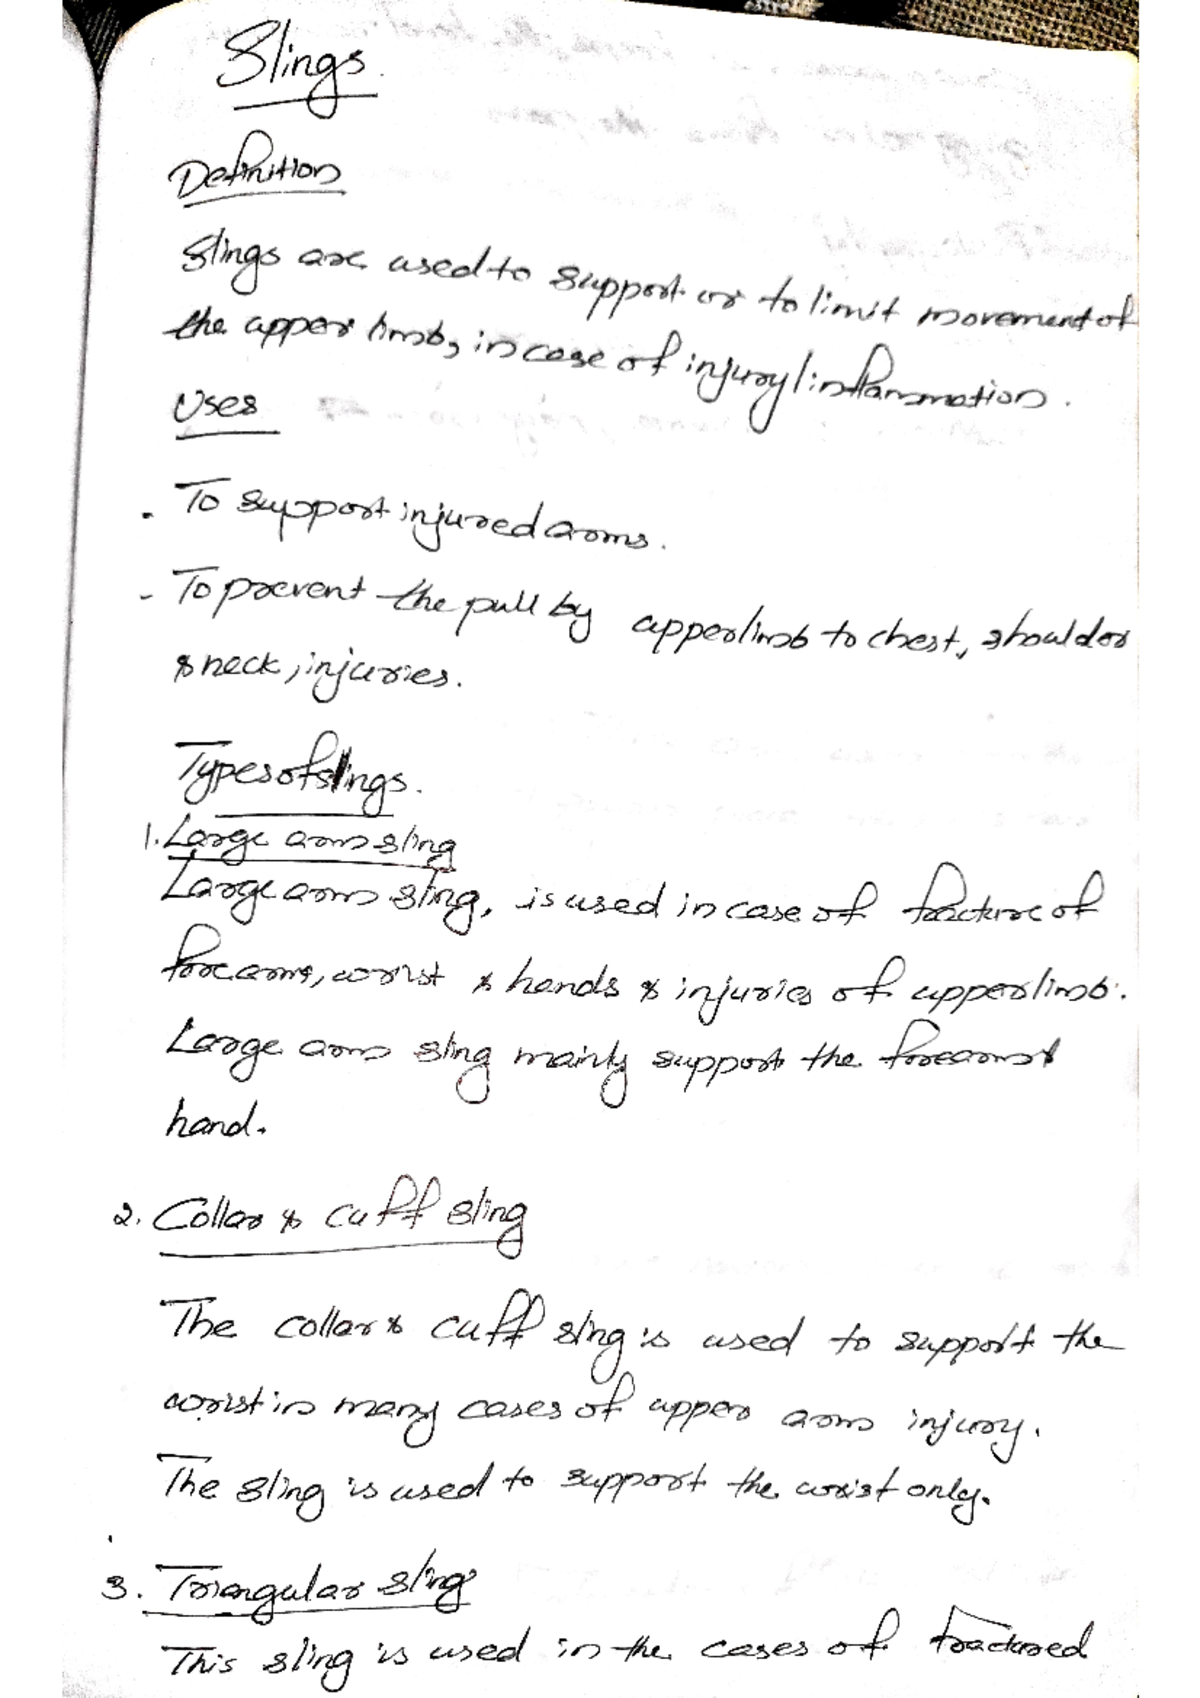 Slings.
Definition
Slings are used to support or to limit movement of
the upper limb, in case of injury/inflammation.
Uses
. To support injured arms.
- To prevent the pull by upperlimb to chest, shoulder
& neck, injuries.
Types of slings.
1. Large arm sling
Large arm sling, is used in case of fracture of
forearms, wrist & hands & injuries of upperlimb.
Large arm sling mainly support the forearm &
hand.
2. Collar & cuff sling
The collar & cuff sling is used to support the
wrist in many cases of upper arm injury.
The sling is used to support the wrist only.
3. Triangular sling
This sling is used in the cases of fractured